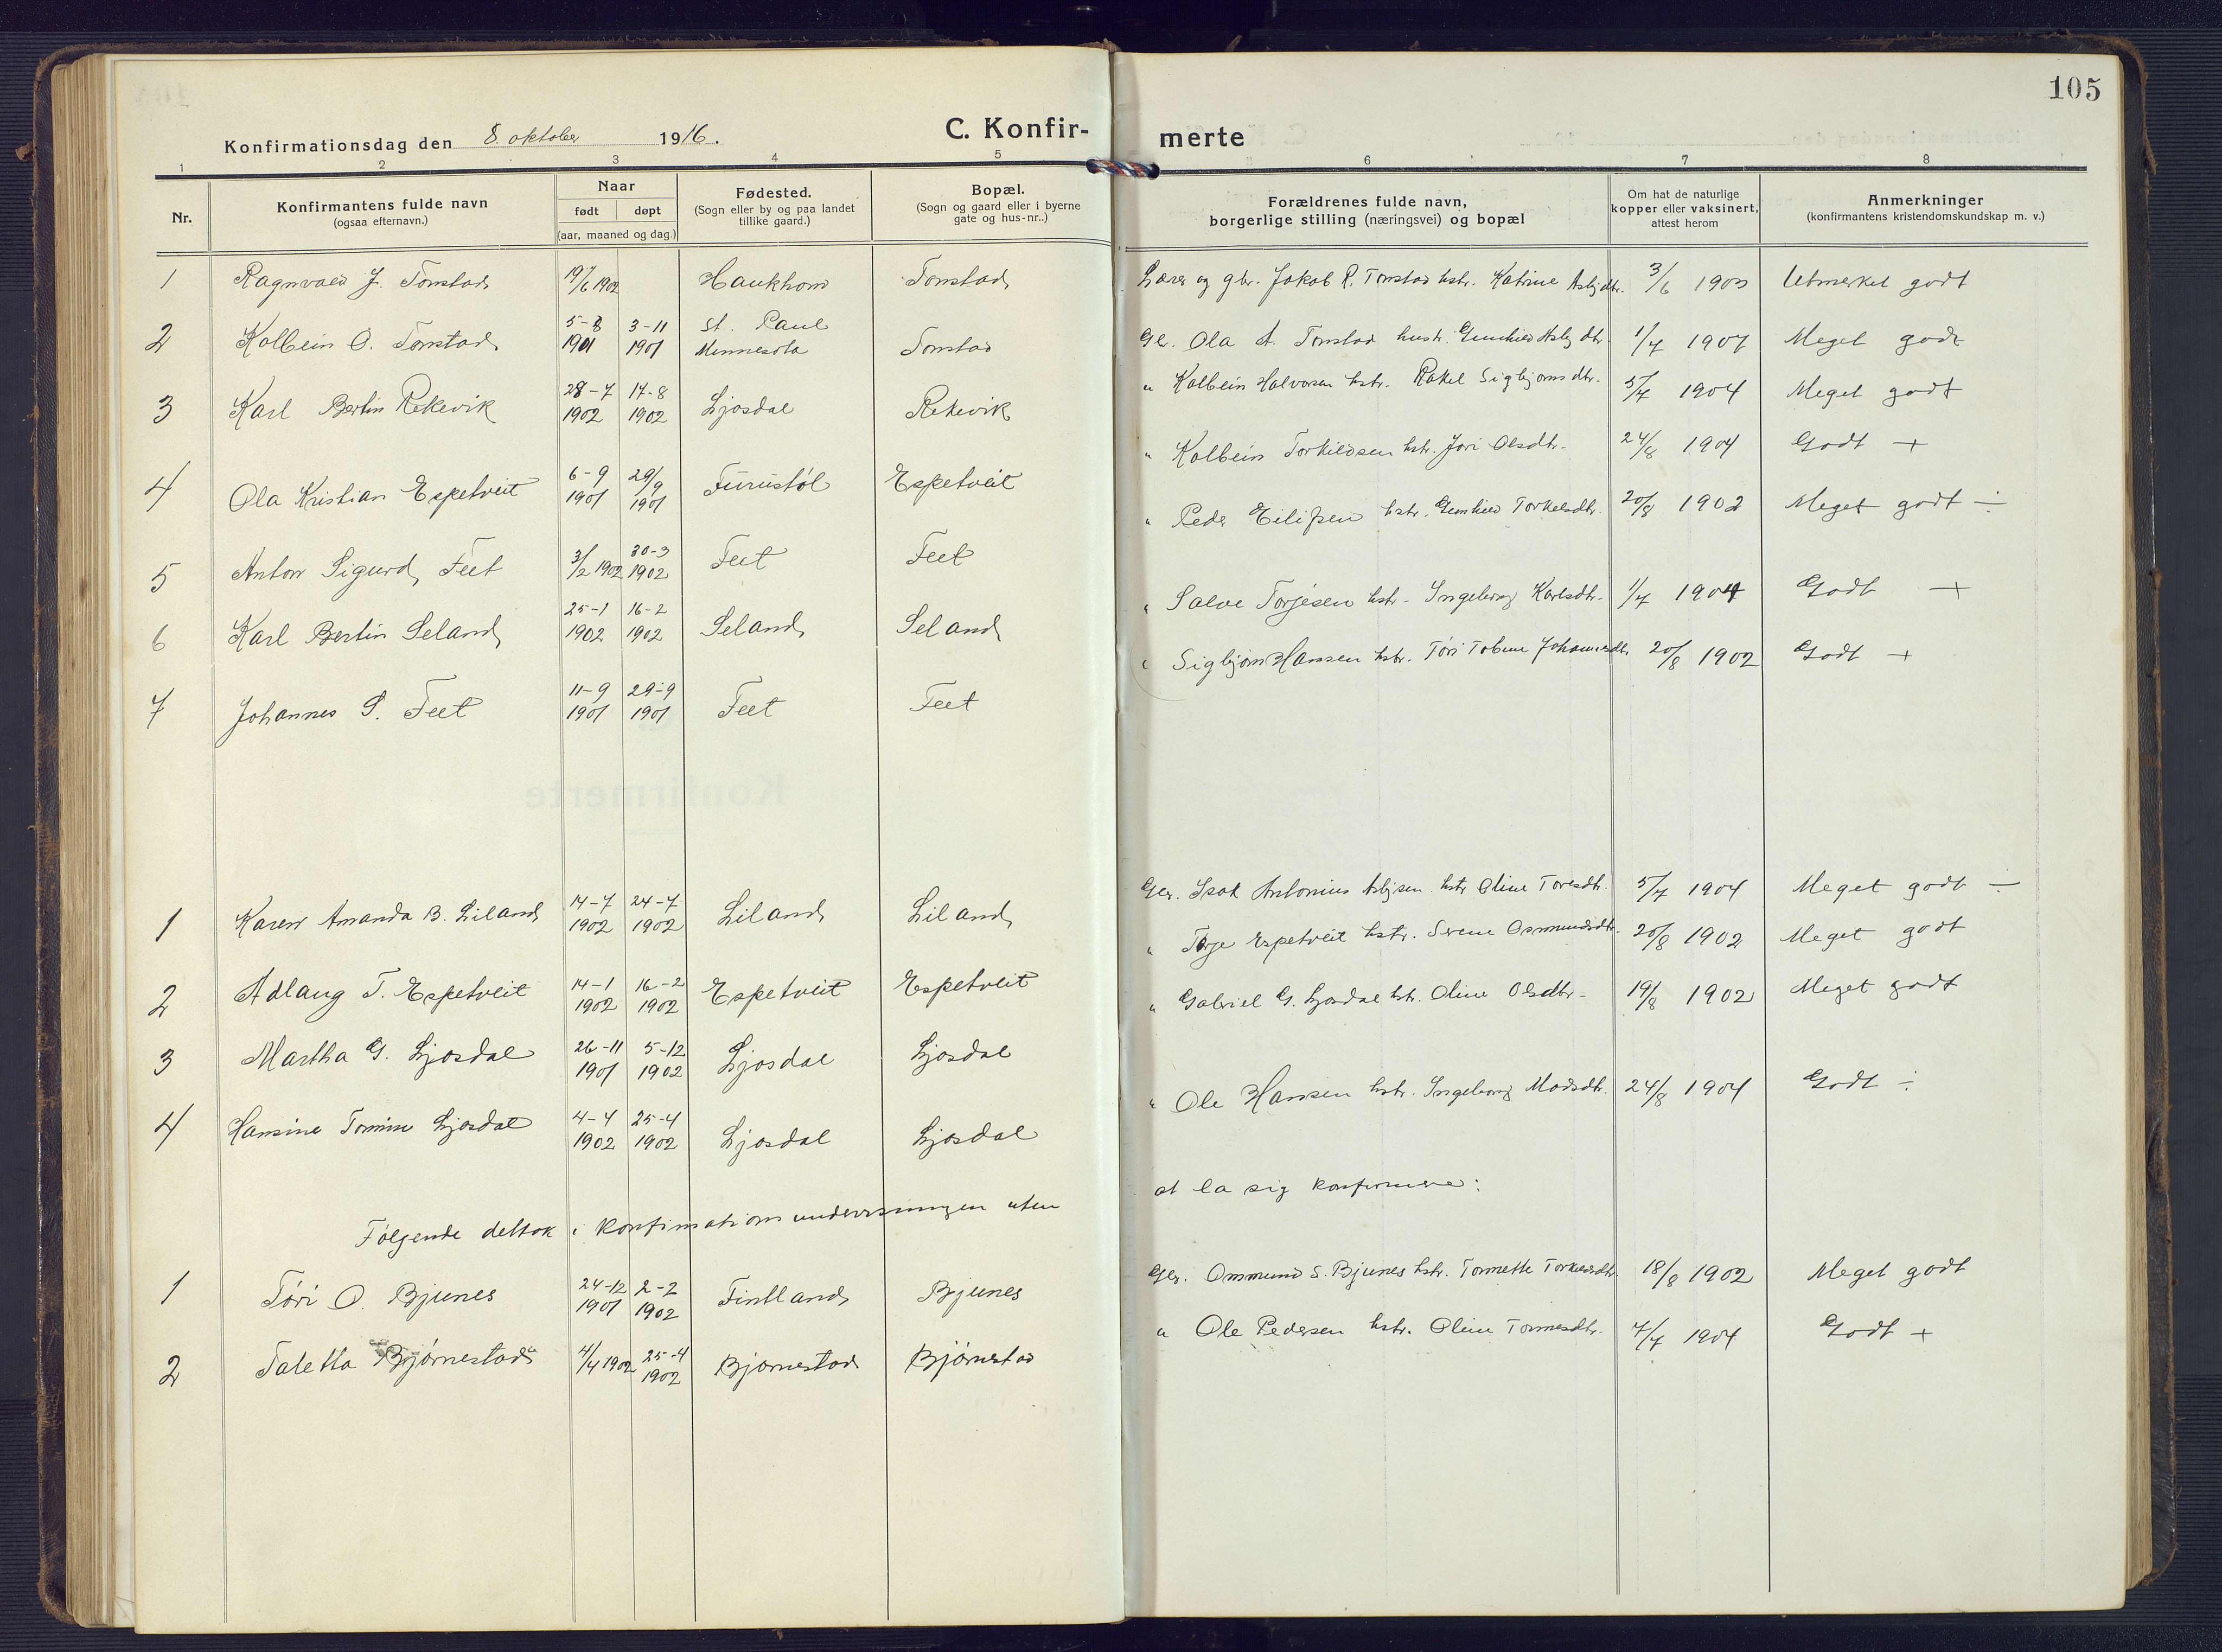 105
Konfirmationsdag den 8. oktober 1916.
C. Konfir-
merte
1 2 3 4 5 6 7 8
Nr.
Konfirmantens fulde navn
(ogsaa efternavn.)
Naar
født døpt
(aar, maaned og dag.)
Fødested.
(Sogn eller by og paa landet
tillike gaard.)
Bopæl.
(Sogn og gaard eller i byerne
gate og hus-nr..)
Forældrenes fulde navn,
borgerlige stilling (næringsvei) og bopæl
Om hat de naturlige
kopper eller vaksinert,
attest herom
Anmerkninger
(konfirmantens kristendomskundskap m. v.)
1 Ragnvald J. Tonstad 19/6 1902 Haukhom Tonstad Lærer og gbr. Jakob R. Tonstad hstr. Katrine Asbjdtr. 3/6 1903 Utmerket godt
2 Kolbein O. Tonstad 5-8 1901 3-11 1901 St. Paul Minnesota Tonstad Gbr. Ola A. Tonstad hustr. Gunhild Asbjdtr. 1/7 1907 Meget godt
3 Karl Bertin Rekevik 28-7 1902 17-8 1902 Ljosdal Rekevik " Kolbein Halvorsen hstr. Rakel Sigbjørnsdtr. 5/7 1904 Meget godt
4 Ola Kristian Espetveit 6-9 1901 29/9 1901 Furustøl Espetveit " Kolbein Torkildsen hstr. Jori Olsdtr. 24/8 1904 Godt +
5 Anton Sigurd Feet 3/2 1902 30-3 1902 Feet Feet " Peder Eilifsen hstr. Gunhild Torkelsdtr. 20/8 1902 Meget godt ÷
6 Karl Bertin Seland 25-1 1902 16-2 1902 Seland Seland " Salve Torjesen hstr. Ingeborg Karlsdtr. 1/7 1904 Godt +
7 Johannes S. Feet 11-9 1901 29-9 1901 Feet Feet " Sigbjørn Hansen hstr. Tøri Tobine Johannesdtr. 20/8 1902 Godt +
1 Karen Amanda B. Liland 14-7 1902 24-7 1902 Liland Liland Gbr. Isak Antonius Asbjsen hstr. Oline Toresdtr. 5/7 1904 Meget godt ÷
2 Adlaug T. Espetveit 14-1 1902 16-2 1902 Espetveit Espetveit " Torje Espetveit hstr. Serene Osmundsdtr. 20/8 1902 Meget godt
3 Martha G. Ljosdal 26-11 1901 5-12 1902 Ljosdal Ljosdal " Gabriel G. Ljosdal hstr. Oline Olsdtr. 19/8 1902 Meget godt
4 Hansine Tomine Ljosdal 4-4 1902 25-4 1902 Ljosdal Ljosdal " Ole Hansen hstr. Ingeborg Madsdtr. 24/8 1904 Godt ÷
Følgende deltok i konfirmationsundervisningen uten at la sig konfirmere:
1 Tøri O. Bjunes 24-12 1901 2-2 1902 Fintland Bjunes Gbr. Ommund S. Bjunes hstr. Tonnette Torkelsdtr. 18/8 1902 Meget godt
2 Taletta Bjørnestad 4/4 1902 25-4 1902 Bjørnestad Bjørnestad " Ole Pedersen hstr. Oline Tønnesdtr. 7/7 1904 Godt +